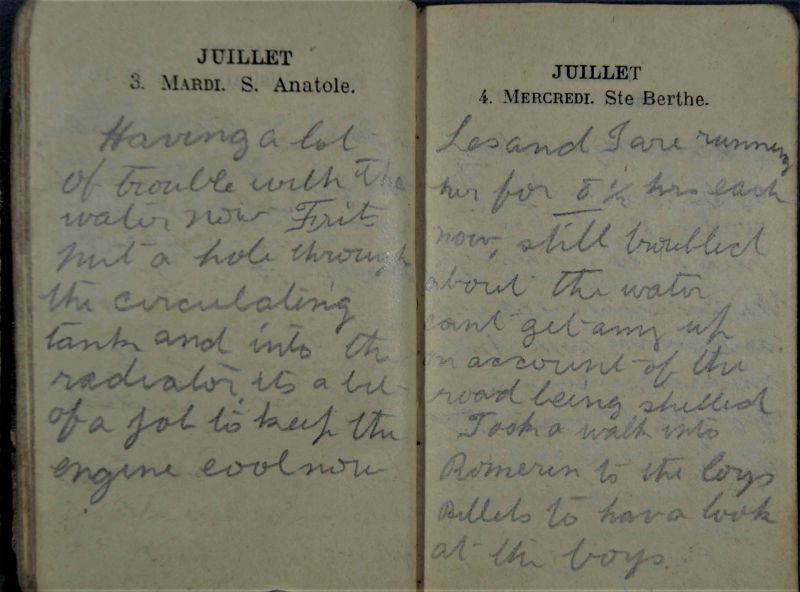 JUILLET
3. MARDI. S. Anatole.
Having a lot
of trouble with the
water now Frits
put a hole through
the circulating
tank and into the
radiator, its a bit
of a job to keep the
engine cool now
JUILLET
4. MERCREDI. Ste Berthe.
Les and I are running
her for hrs each
now, still troubled
about the water
cant get any up
on account of the
road being shelled
Took a walk into
Romerin to the boys
Billets to hav a look
at the boys.